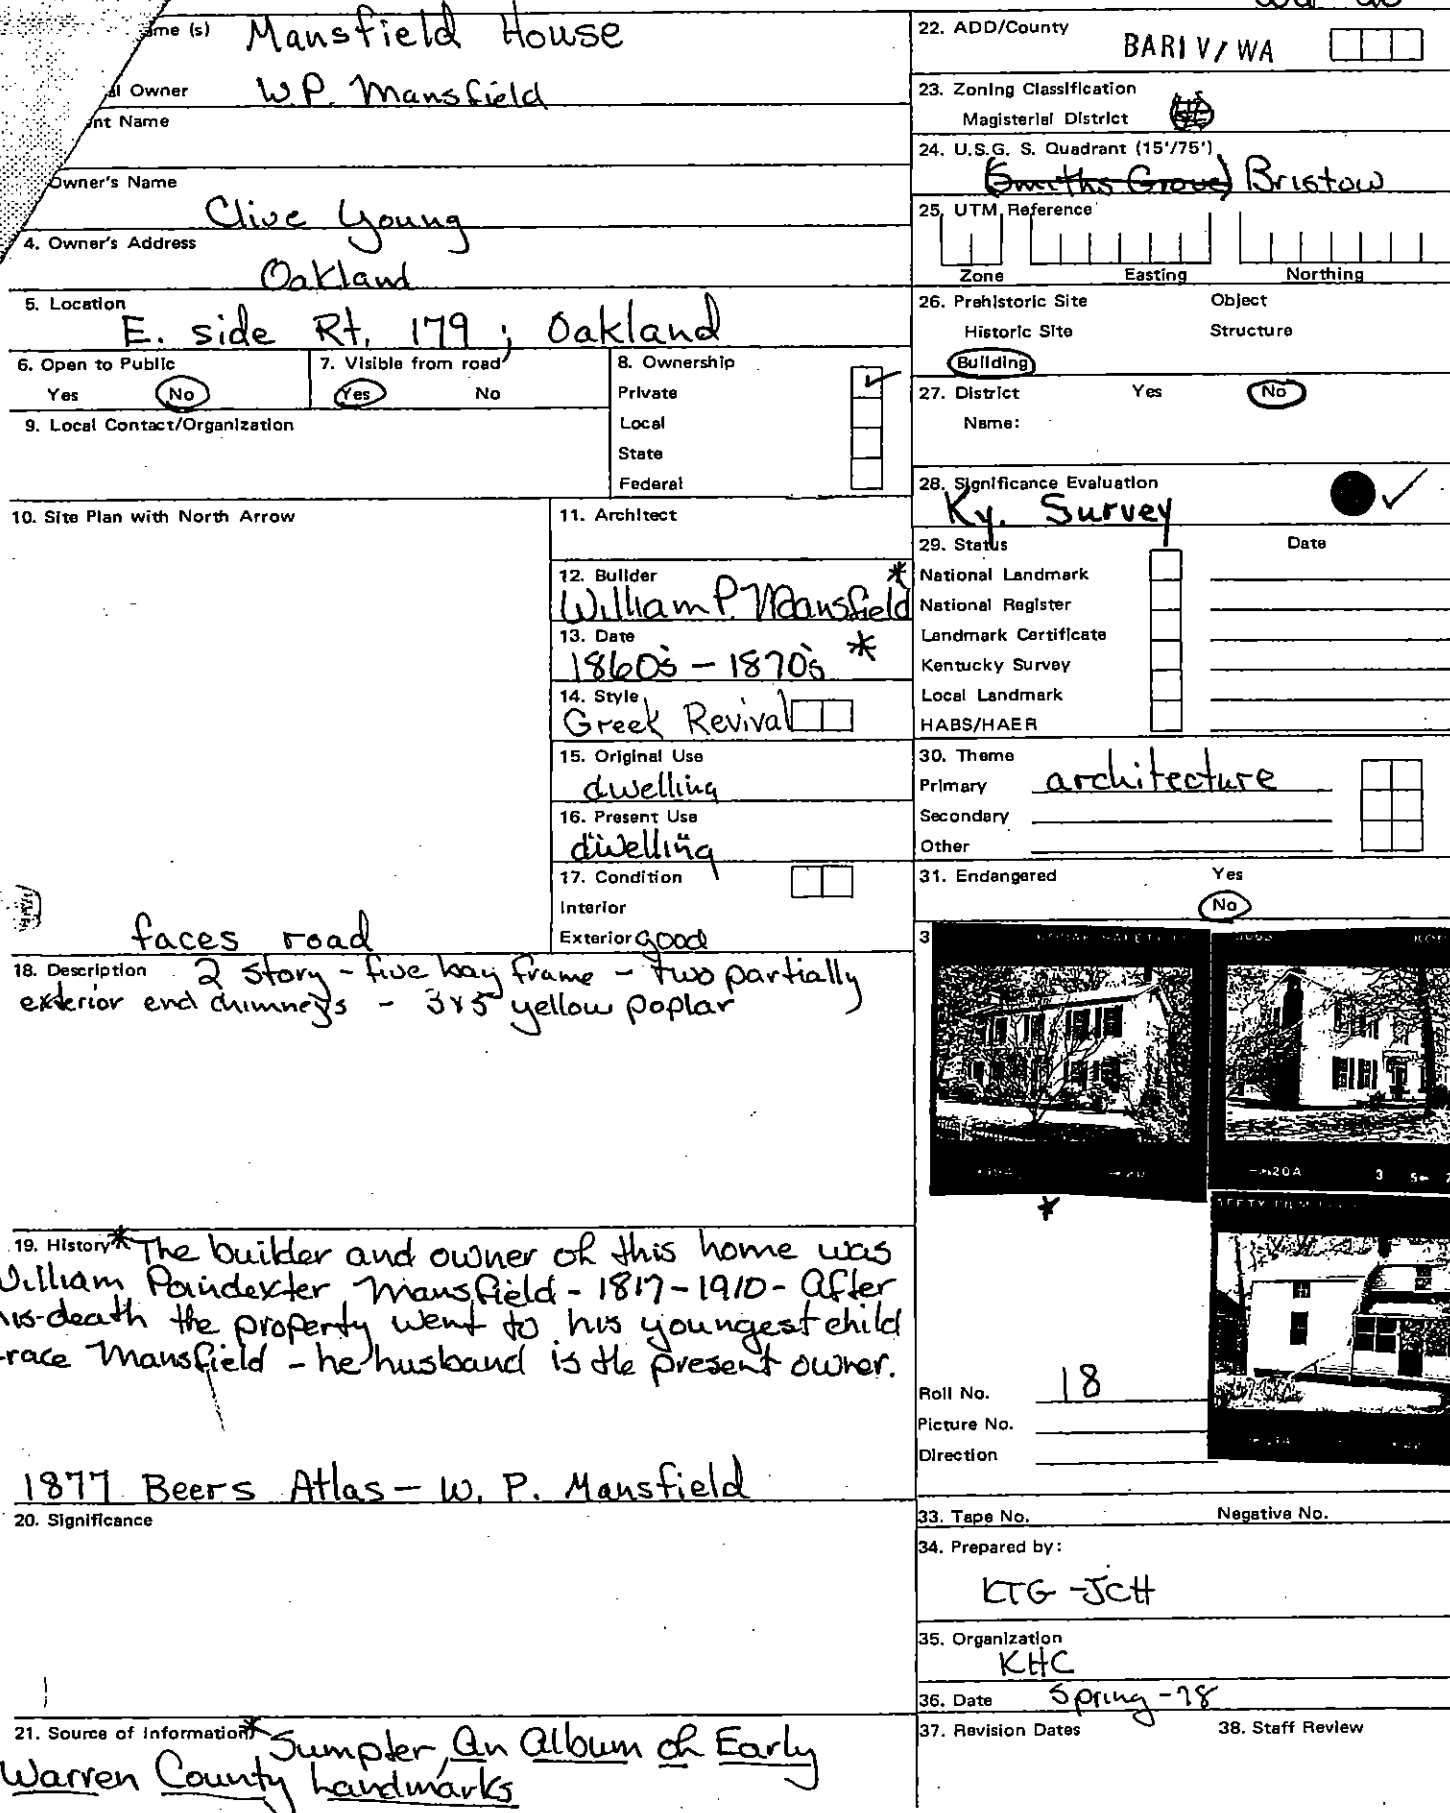 me (s) Mansfield House
al Owner W.P. Mansfield
nt Name
Owner's Name
Clive Young
4. Owner's Address
Oakland
5. Location
E. side Rt. 179 ; Oakland
6. Open to Public
Yes No
7. Visible from road
Yes No
8. Ownership
Private
Local
State
Federal
9. Local Contact/Organization
10. Site Plan with North Arrow
faces road
11. Architect
12. Builder *
William P. Mansfield
13. Date
1860's - 1870's *
14. Style
Greek Revival
15. Original Use
dwelling
16. Present Use
dwelling
17. Condition
Interior
Exterior good
18. Description 2 story - five bay frame - two partially
exterior end chimneys - 3x5 yellow poplar
19. History * The builder and owner of this home was
William Poindexter Mansfield - 1817-1910 - After
his death the property went to his youngest child
race Mansfield - he husband is the present owner.
1877 Beers Atlas - W. P. Mansfield
20. Significance
21. Source of Information * Sumpter, An Album of Early
Warren County Landmarks
22. ADD/County
BARIV/WA
23. Zoning Classification
Magisterial District
24. U.S.G. S. Quadrant (15'/75')
(Smiths Grove) Bristow
25. UTM Reference
Zone Easting Northing
26. Prehistoric Site Object
Historic Site Structure
Building
27. District Yes No
Name:
28. Significance Evaluation
Ky. Survey
29. Status Date
National Landmark
National Register
Landmark Certificate
Kentucky Survey
Local Landmark
HABS/HAER
30. Theme
Primary architecture
Secondary
Other
31. Endangered Yes
No
3
20A 3
*
Roll No. 18
Picture No.
Direction
33. Tape No. Negative No.
34. Prepared by:
KTG - JCH
35. Organization
KHC
36. Date Spring - 78
37. Revision Dates 38. Staff Review